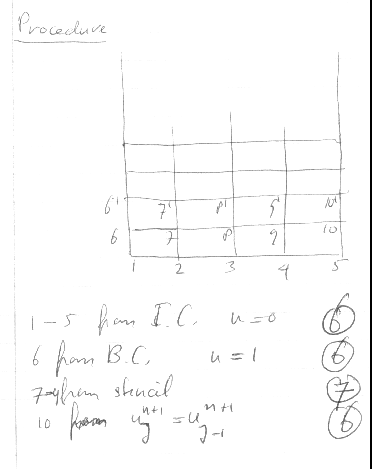 Procedure
6' 7' 8' 9' 10'
6 7 8 9 10
1 2 3 4 5
1 - 5 from I.C. u = 0 6
6 from B.C. u = 1 6
7-9 from stencil 7
10 from u_j^{n+1} = u_{j-1}^{n+1} 6